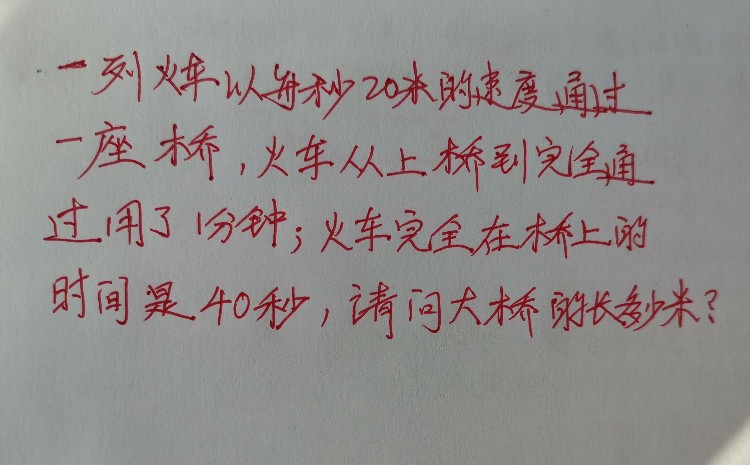 一列火车以每秒20米的速度通过
一座桥,火车从上桥到完全通
过用了1分钟;火车完全在桥上的
时间是40秒,请问大桥的长多少米?